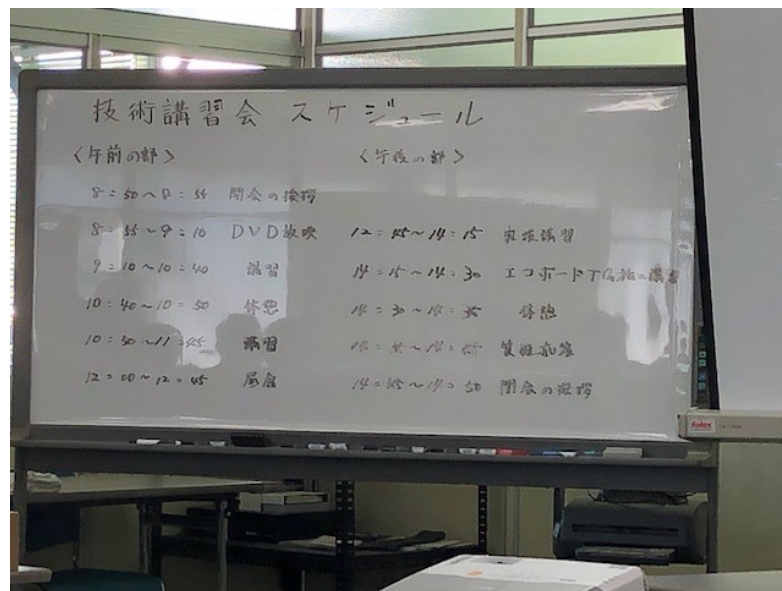 技術講習会 スケジュール
〈午前の部〉
8:50~8:55 開会の挨拶
8:55~9:10 DVD放映
9:10~10:40 講習
10:40~10:50 休憩
10:50~11:45 講習
12:00~12:45 昼食
〈午後の部〉
12:45~14:15 実技講習
14:15~14:30 エコボードTG
14:30~14:35 休憩
14:35~14:45 質疑応答
14:45~14:50 閉会の挨拶
Folex